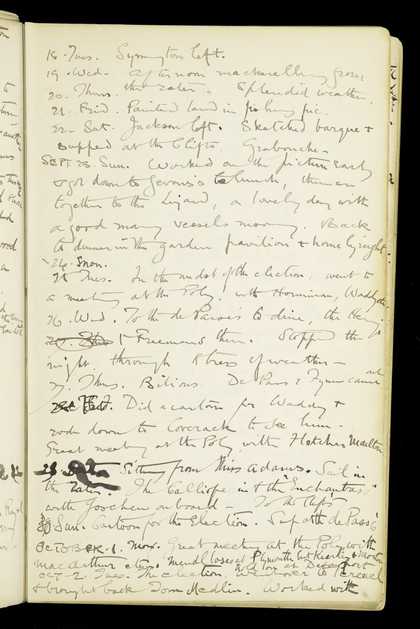 18. Tues. Symington left.
19. Wed. Afternoon mackerelling from
20. Thurs. the Splendid weather.
21. Frid. Painted land in fishing pic.
22. Sat. Jackson left. Sketched barque &
supped at the Clifts
SEPT 23 Sun. Worked on the picture early
& got down to to lunch, then on
together to the Lizard, a lovely day with
a good many vessels moving. Back
to dinner in the garden pavilion & home by night
24. Mon.
25 Tues. In the midst of the election, went to
a meeting at the Poly. with Horniman,
26. Wed. To the de Pass's to dine, the
Freemans there. Stopped the
night through stress of weather
27. Thurs. Bilious. De Pass & came
Did a cartoon for Waddy &
rode down to Coverack to see him.
Great meeting at the Poly with Fletcher Moulton
29 Sitting from Miss Adams. Sail in
the The Calliope in & the Enchantress
with Goschen on board - To the Clifts
30 Sun. Cartoon for the Election. Sup at de Pass's
OCTOBER. 1. Mon. Great meeting at the Poly with
MacArthur etc. Mendl loses at Plymouth but Kearley & Morton
get in at Devonport
OCT. 2. Tues. The election. Went over to Penryn
& brought back Tom Medlin. Worked with